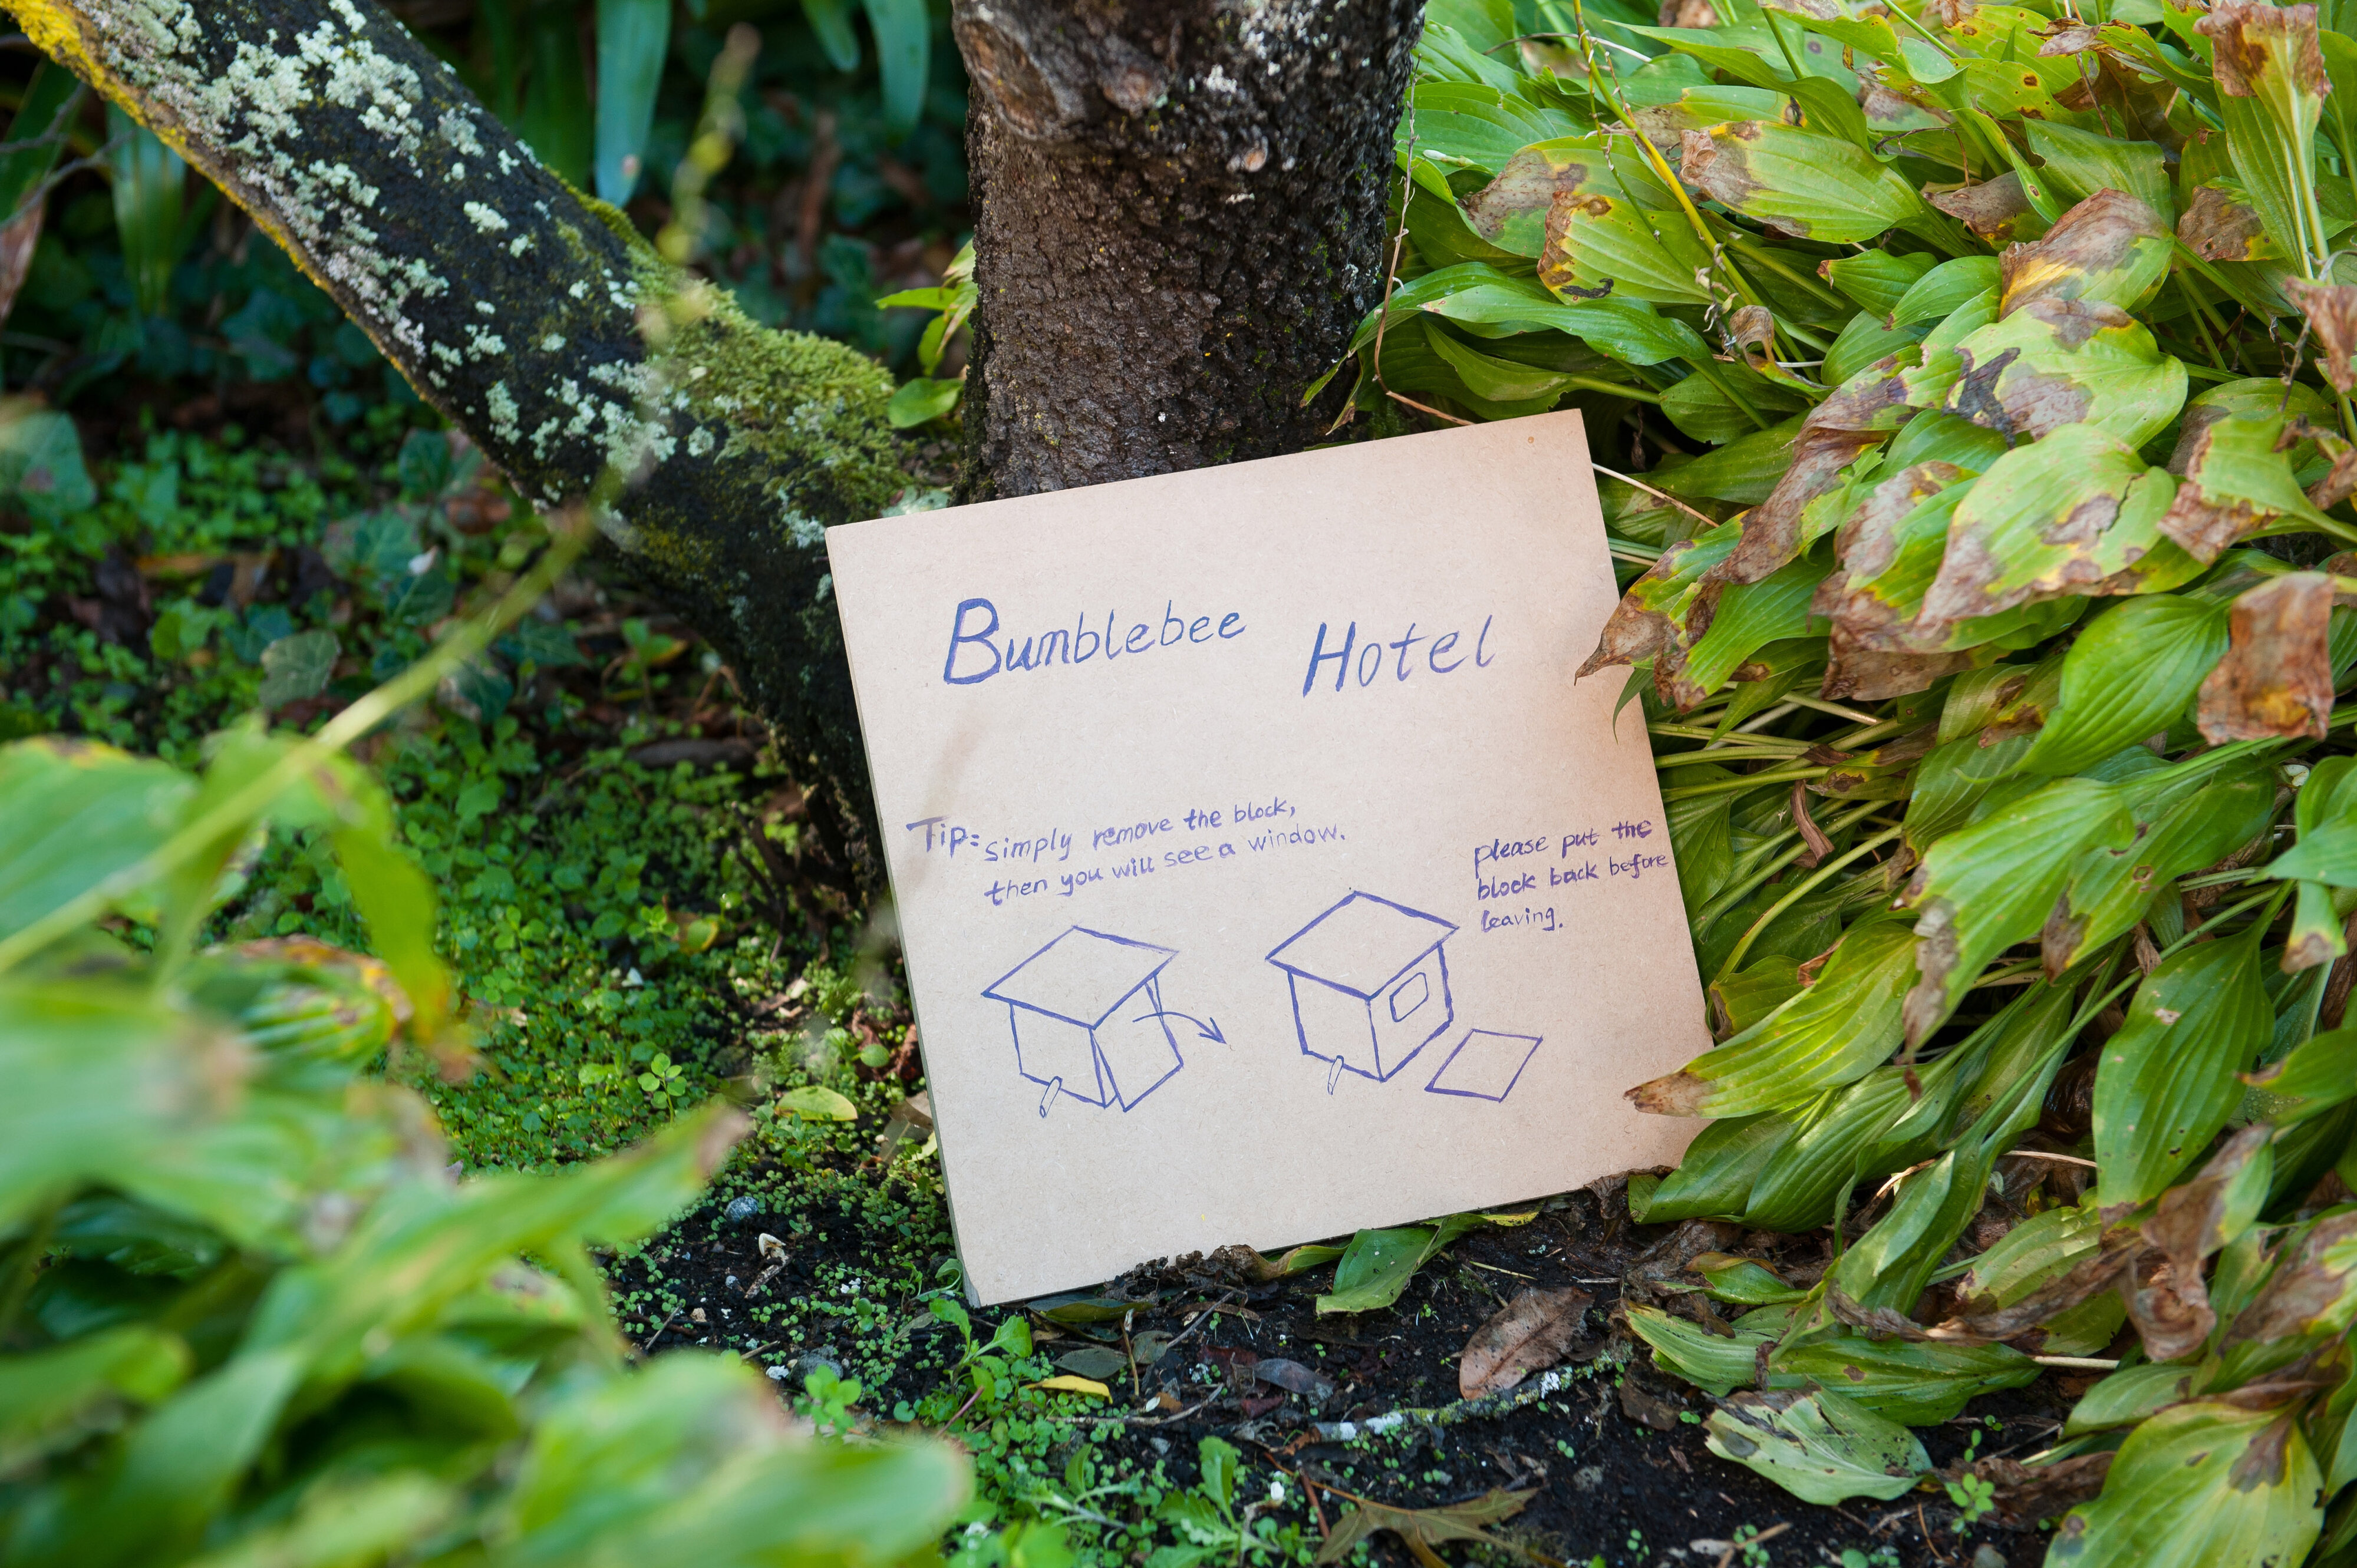 Bumblebee Hotel
Tip: simply remove the block,
then you will see a window.
please put the
block back before
leaving.